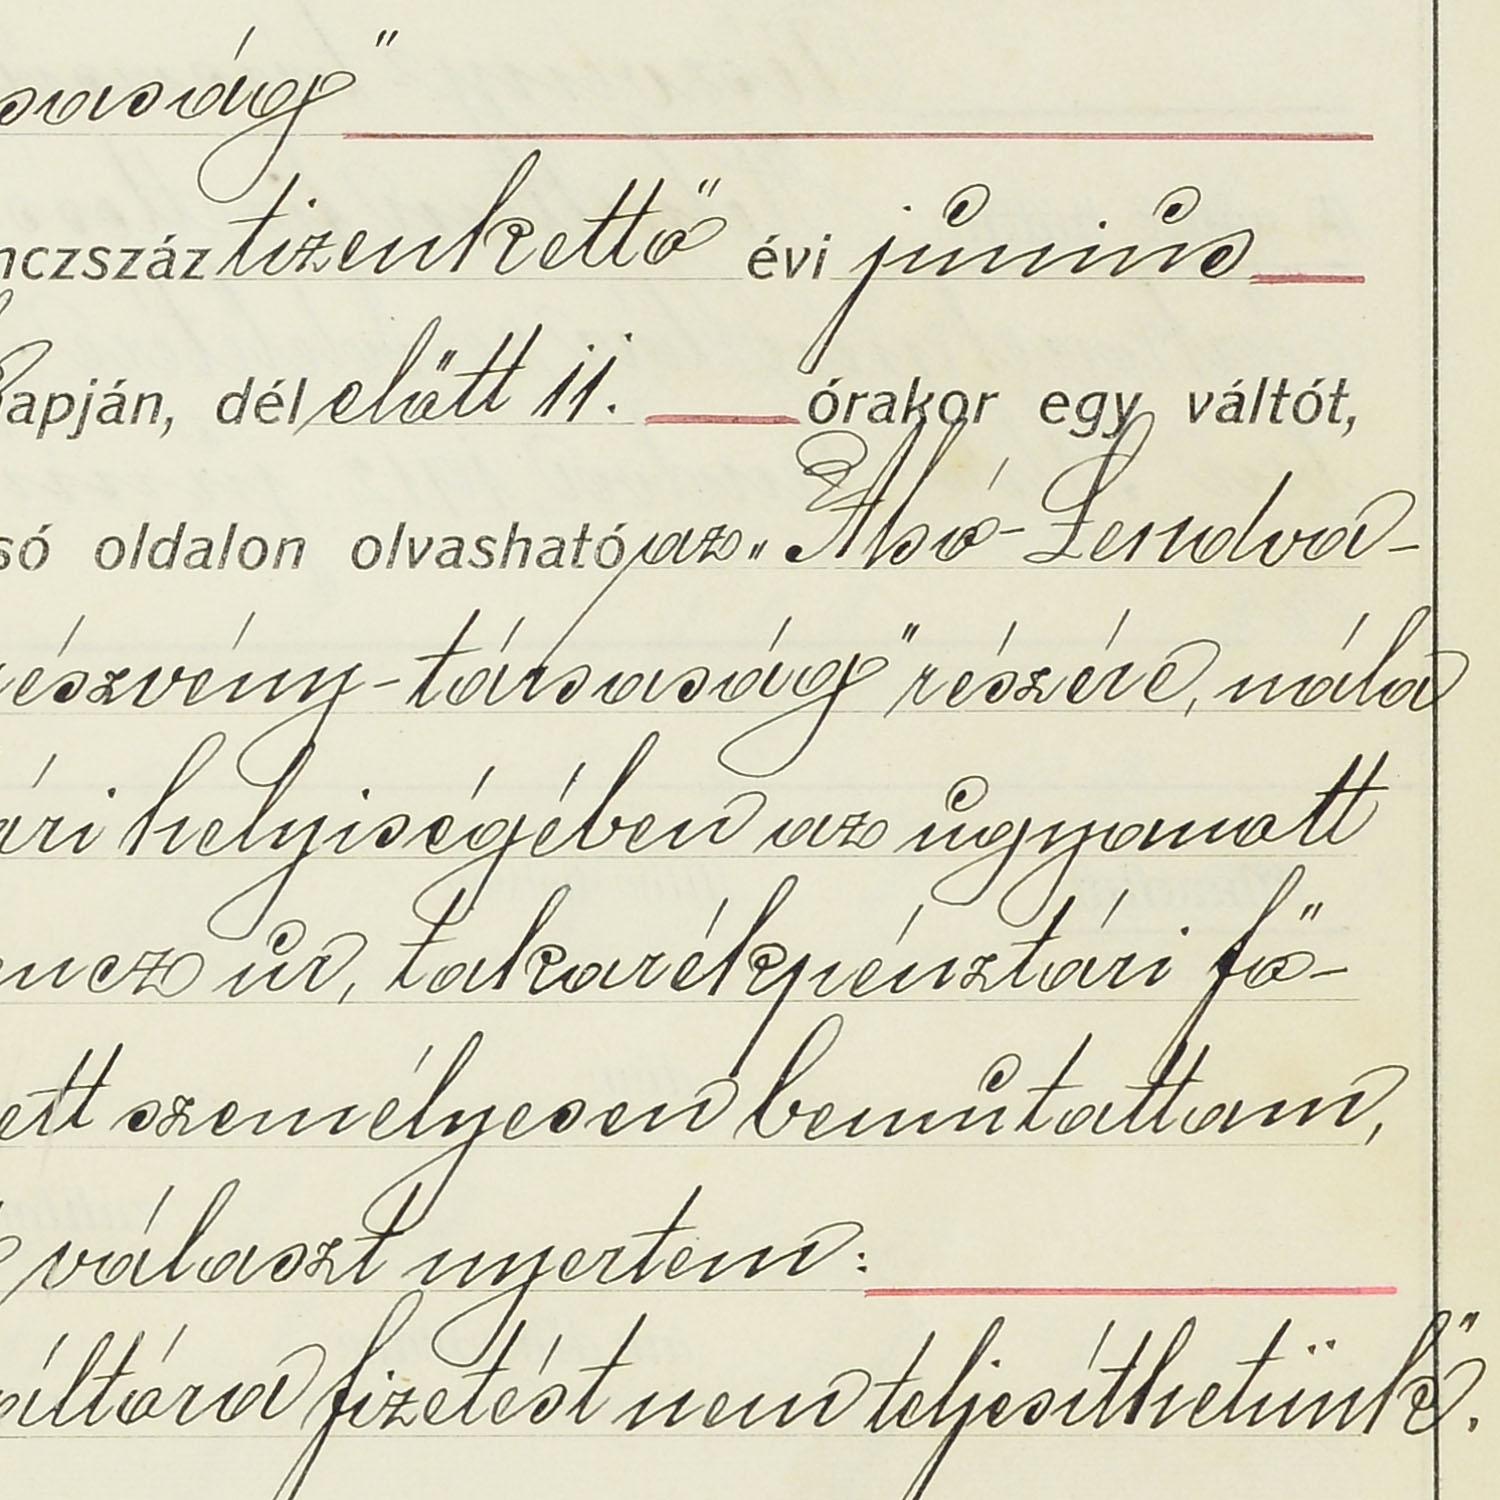 saság"
nczszáz tizenkettő évi június
apján, dél előtt 11. órakor egy váltót,
só oldalon olvasható az „Alsó-Lendva-
részvény-társaság" részére, nála
ári helyiségében az ugyanott
encz úr, takarékpénztári fő-
ett személyesen bemutattam,
választ nyertem:
áltóra fizetést nem teljesíthetünk".